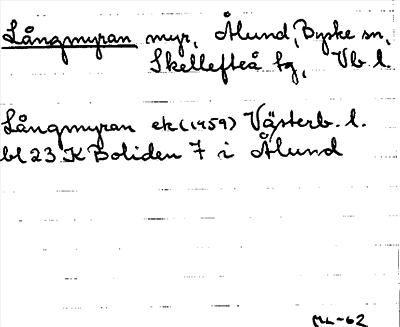 Långmyran myr, Ålund, Byske sn,
Skellefteå tg, Vb l.
Långmyran ek (1959) Västerb. l.
bl 23 K Boliden 7 i Ålund
ML-62